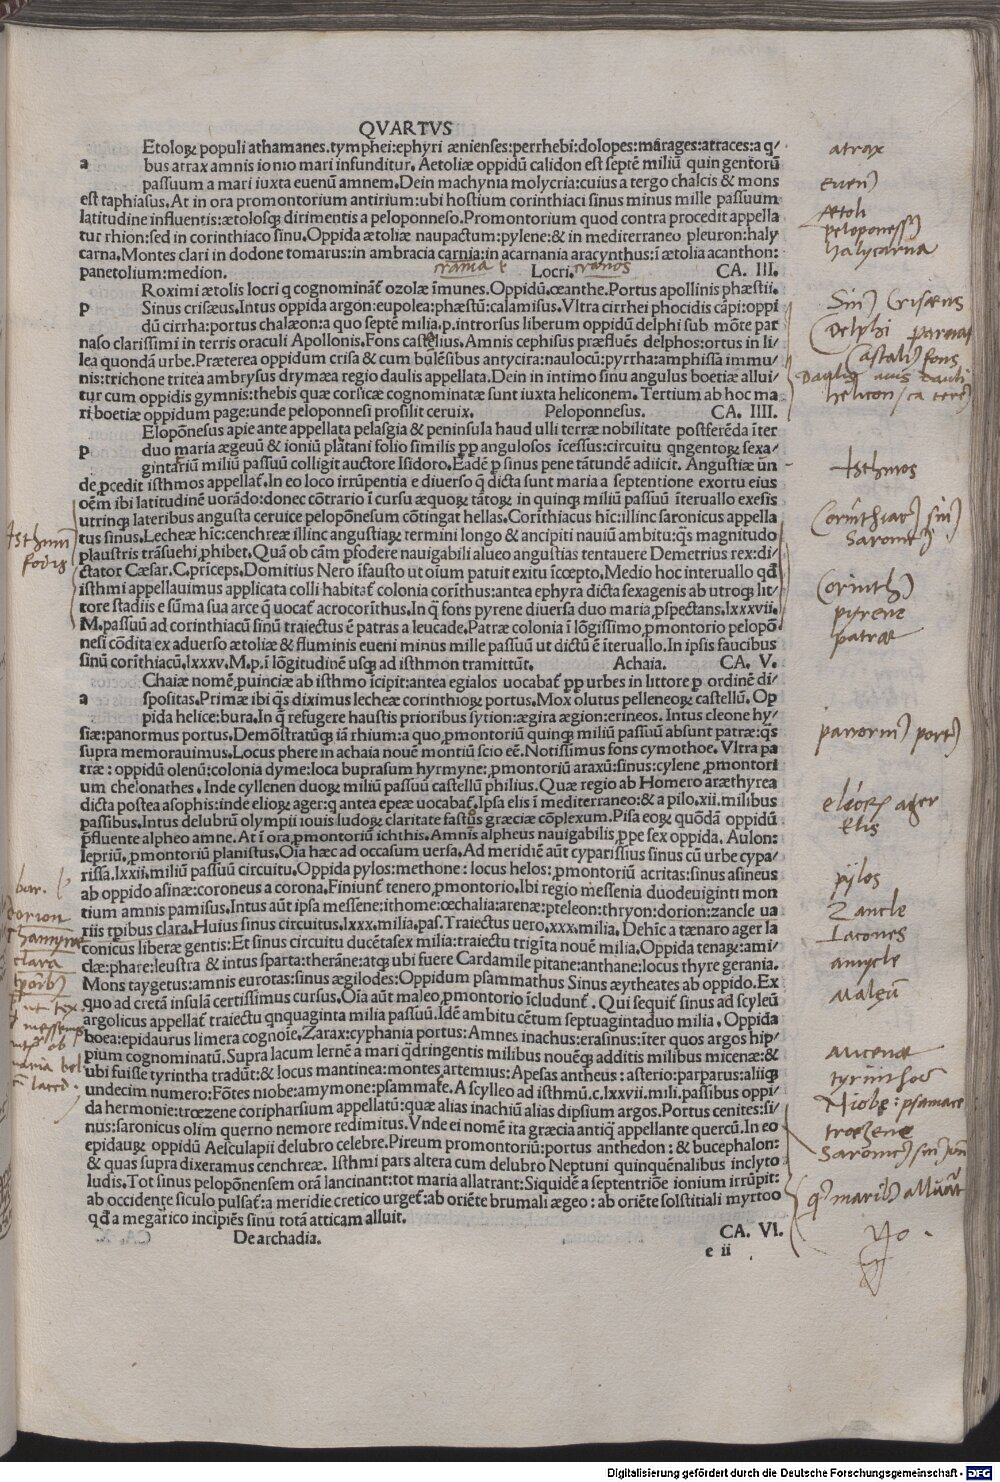 QVARTVS
Etoloꝝ populi athamanes.tymphei:ephyri ænienses:perrhebi:dolopes:marages:atraces:a q/
a bus atrax amnis ionio mari infunditur.Aetoliæ oppidū calidon est septē miliū quingentorū
passuum a mari iuxta euenū amnem.Dein machynia molycria:cuius a tergo chalcis & mons
est taphiasus.At in ora promontorium antirium:ubi hostium corinthiaci sinus minus mille passuum
latitudine influentis:ætolosq; dirimentis a peloponneso.Promontorium quod contra procedit appella
tur rhion:sed in corinthiaco sinu.Oppida ætoliæ naupactum:pylene:& in mediterraneo pleuron:haly
carna.Montes clari in dodone tomarus:in ambracia carnia:in acarnania aracynthus:ī ætolia acanthon:
panetolium:medion. Locri. CA. III.
Roximi ætolis locri q cognomināt̄ ozolæ īmunes.Oppidū.œanthe.Portus apollinis phæstii.
p Sinus crisæus.Intus oppida argon:eupolea:phæstū:calamisus.Vltra cirrhei phocidis cāpi:oppi
dū cirrha:portus chalæon:a quo septē milia.p.introrsus liberum oppidū delphi sub mōte par
naso clarissimi in terris oraculi Apollonis.Fons castelius.Amnis cephisus præfluēs delphos:ortus in li/
lea quondā urbe.Præterea oppidum crisa & cum bulēsibus antycira:naulocū:pyrrha:amphissa immu
nis:trichone tritea ambrysus drymæa regio daulis appellata.Dein in intimo sinu angulus boetiæ allui/
tur cum oppidis gymnis:thebis quæ corsicæ cognominatæ sunt iuxta heliconem.Tertium ab hoc ma
ri boetiæ oppidum page:unde peloponnesi prosilit ceruix. Peloponnesus. CA. IIII.
Elopōnesus apie ante appellata pelasgia & peninsula haud ulli terræ nobilitate postferēda īter
p duo maria ægeuū & ioniū platani folio similis pp angulosos īcessus:circuitu qngentoꝝ sexa/
gintariū miliū passuū colligit auctore Isidoro.Eadē p sinus pene tātundē adiicit. Angustiæ un
de pcedit isthmos appellat̄.In eo loco irrūpentia e diuerso q̄ dicta sunt maria a septentione exortu eius
oēm ibi latitudinē uorādo:donec cōtrario ī cursu æquoꝝ tātoꝝ in quinq; miliū passuū īteruallo exesis
utrinq; lateribus angusta ceruice pelopōnesum cōtingat hellas.Corīthiacus hīc:illinc saronicus appella
tus sinus.Lecheæ hīc:cenchreæ illinc angustiaꝝ termini longo & ancipiti nauiū ambitu:q̄s magnitudo
plaustris trāsuehi phibet.Quā ob cām pfodere nauigabili alueo angustias tentauere Demetrius rex:di/
ctator Cæsar.C.prīceps.Domitius Nero īfausto ut oīum patuit exitu īccepto.Medio hoc interuallo qđ
isthmi appellauimus applicata colli habitat̄ colonia corīthus:antea ephyra dicta sexagenis ab utroq; lit/
tore stadiis e sūma sua arce q̄ uocat̄ acrocorīthus.In q̄ fons pyrene diuersa duo maria pspectans.lxxxvii.
M.passuū ad corinthiacū sinū traiectus ē patras a leucade.Patræ colonia ī lōgissimo pmontorio pelopō
nesi cōdita ex aduerso ætoliæ & fluminis eueni minus mille passuū ut dictū ē īteruallo.In ipsis faucibus
sinū corīthiacū.lxxxv.M.p.ī lōgitudinē usq; ad isthmon tramittūt. Achaia. CA. V.
Chaiæ nomē puinciæ ab isthmo īcipit:antea egialos uocabat̄ pp urbes in littore p ordinē di/
a spositas.Primæ ibi q̄s diximus lecheæ corinthioꝝ portus.Mox olutus pelleneoꝝ castellū.Op
pida helice:bura.In q̄ refugere haustis prioribus sytion:ægira ægion:erineos.Intus cleone hy/
siæ:panormus portus.Demōstratūq; iā rhium:a quo pmontoriū quinq; miliū passuū absunt patræ:q̄s
supra memorauimus.Locus phere in achaia nouē montiū scio eē.Notissimus fons cymothoe.Vltra pa
træ:oppidū olenū:colonia dyme:loca buprasum hyrmyne:pmontoriū araxū:sinus:cylene pmontori
um chelonathes.Inde cyllenen duoꝝ miliū passuū castellū philius.Quæ regio ab Homero aræthyrea
dicta postea asophis:inde elioꝝ ager:q antea epeæ uocabat̄.Ipsa elis ī mediterraneo:& a pilo.xii.milibus
passibus.Intus delubrū olympii iouis ludoꝝ claritate fastus græciæ cōplexum.Pisa eoꝝ quōdā oppidū
pfluente alpheo amne.At ī ora pmontoriū ichthis.Amnis alpheus nauigabilis ppe sex oppida.Aulon:
lepriū.pmontoriū planistus.Oīa hæc ad occasum uersa.Ad meridiē aūt cyparissius sinus cū urbe cypa/
rissa.lxxii.miliū passuū circuitu.Oppida pylos:methone:locus helos:pmontoriū acritas:sinus asineus
ab oppido asinæ:coroneus a corona.Finiunt̄ tenero pmontorio.Ibi regio messenia duodeuiginti mon
tium amnis pamisus.Intus aūt ipsa messene:ithome:œchalia:arenæ:pteleon:thryon:dorion:zancle ua
riis tpibus clara.Huius sinus circuitus.lxxx.milia.pas.Traiectus uero.xxx.milia.Dehīc a tænaro ager la
conicus liberæ gentis:Et sinus circuitu ducētasex milia:traiectu trigīta nouē milia.Oppida tenaꝝ:ami/
clæ:phare:leustra & intus sparta:therāne:atq; ubi fuere Cardamile pitane:anthane:locus thyre gerania.
Mons taygetus:amnis eurotas:sinus ægilodes:Oppidum psammathus Sinus æytheates ab oppido.Ex
quo ad cretā insulā certissimus cursus.Oīa aūt maleo pmontorio īcludunt̄.Qui sequit̄ sinus ad scyleū
argolicus appellat̄ traiectu qnquaginta milia passuū.Idē ambitu cētum septuagintaduo milia.Oppida
boea:epidaurus limera cognoīe.Zarax:cyphania portus:Amnes inachus:erasinus:īter quos argos hip/
pium cognominatū.Supra lacum lernē a mari qdringentis milibus nouēq; additis milibus micenæ:&
ubi fuisse tyrintha tradūt:& locus mantinea:montes artemius:Apesas antheus:asterio:parparus:aliiq;
undecim numero:Fōtes niobe:amymone:psammaſe.A scylleo ad isthmū.c.lxxvii.mili.passibus oppi/
da hermonie:trœzene coripharsium appellatū:quæ alias inachiū alias dipsium argos.Portus cenites:si/
nus:saronicus olim querno nemore redimitus.Vnde ei nomē ita græcia antiq̄ appellante quercū.In eo
epidauꝝ oppidū Aesculapii delubro celebre.Pireum promontoriū:portus anthedon:& bucephalon:
& quas supra dixeramus cenchreæ. Isthmi pars altera cum delubro Neptuni quinquēnalibus inclyto
ludis.Tot sinus pelopōnensem orā lancinant:tot maria allatrant:Siquidē a septentriōe ionium irrūpit:
ab occidente siculo pulsat̄:a meridie cretico urget̄:ab oriēte brumali ægeo:ab oriēte solstitiali myrtoo
qđ a megarico incipiēs sinu totā atticam alluit.
De archadia. CA. VI.
e ii
atrax
Ætoli
halycarna
crania
cranos
Delphi
Isthmos
pyrene
patræ
Elis
pylos
Zancle
Lacones
amycle
Micenæ
Niobe: psamate
troezene
dorion
clara
Digitalisierung gefördert durch die Deutsche Forschungsgemeinschaft - DFG